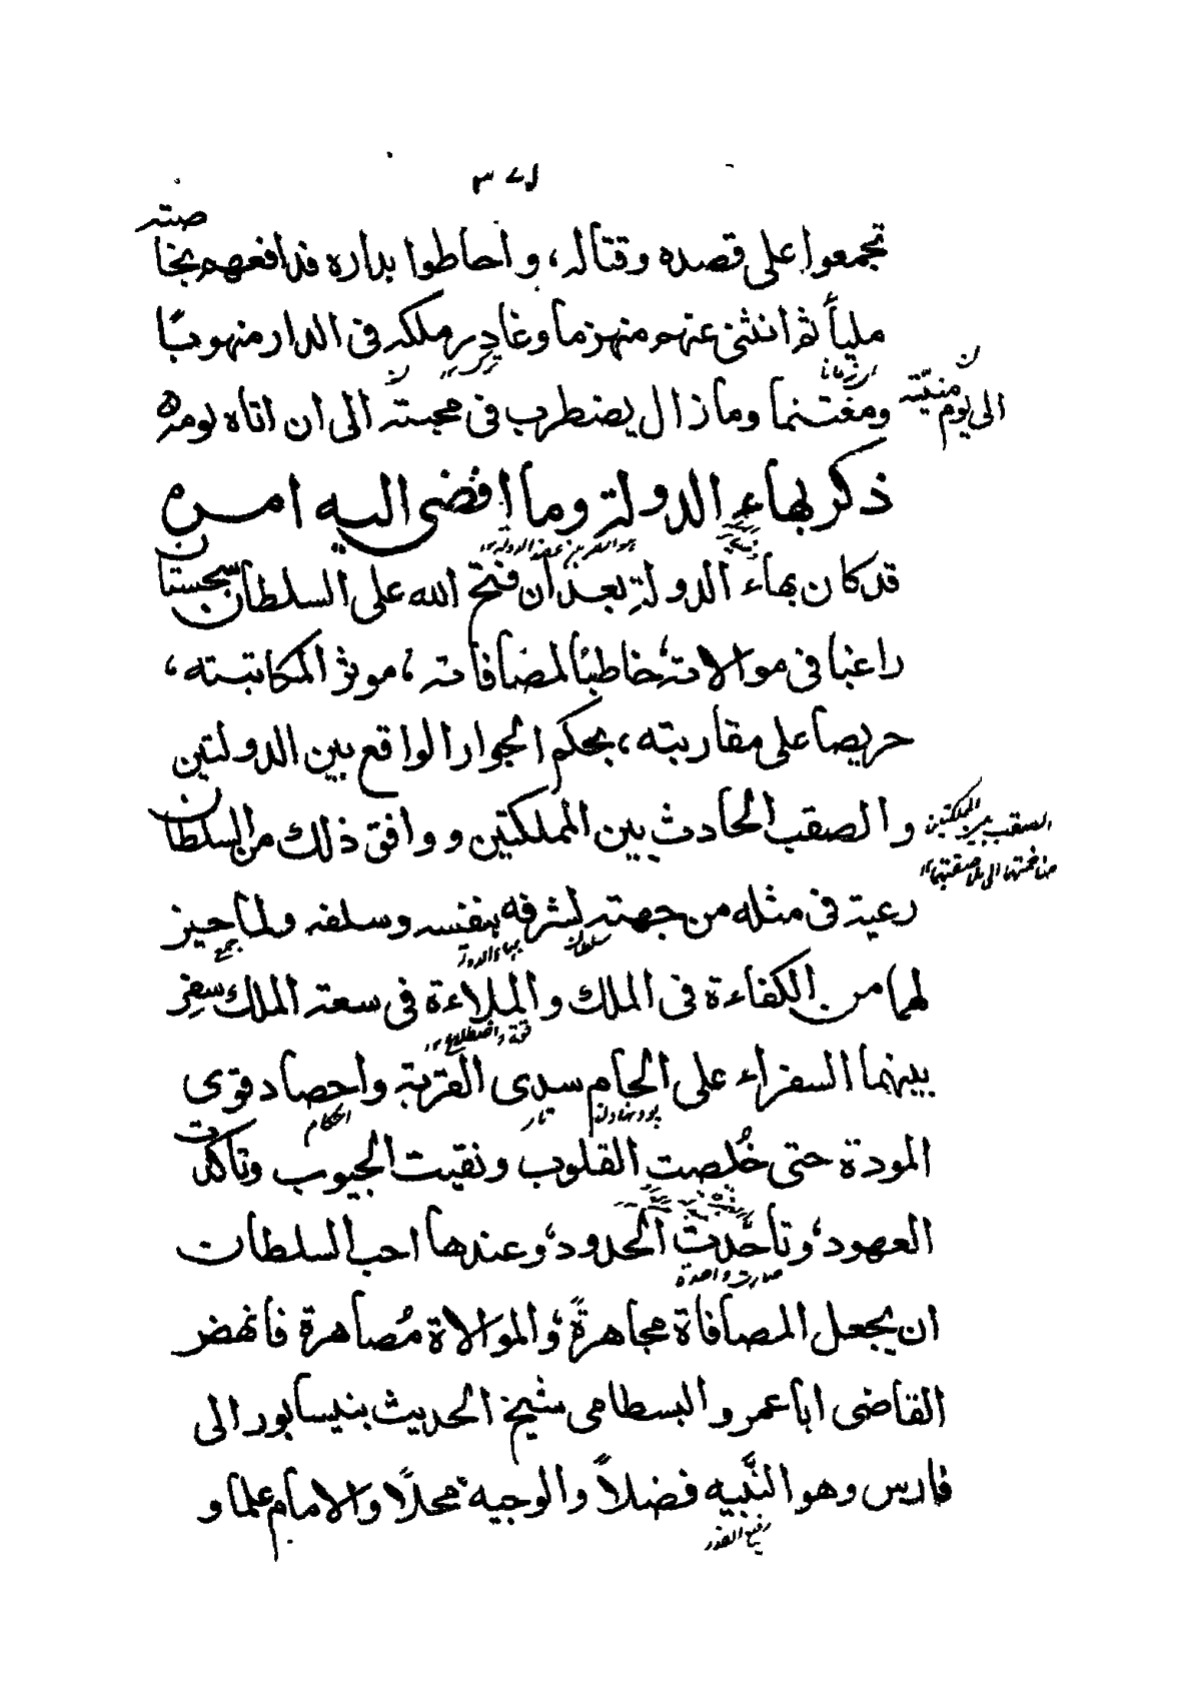 تجمعوا على قصده وقتاله، واحاطوا بداره فدافعهم بخاصته
ملياً ثم انثنى عنهم منهزما وغادر ملكه فى الدار منهوبًا
ومغتنما وما زال يضطرب فى محبته الى ان اتاه يومه
الى يوم منيّته
ذكر بهاء الدولة وما افضى اليه امره
قد كان بهاء الدولةِ بعد ان فتح الله على السلطان سجستان
راغبا فى موالاته، خاطبًا لمصافاته، موثرا لمكاتبته،
حريصا على مقاربته، بحكم الجوار الواقع بين الدولتين
والصقب الحادث بين المملكتين ووافق ذلك من السلطان
السقب بين المملكتين
رعبة فى مثله من جهته لشرفه بنفسه وسلفه ولما حيز
سلطان
بهاء الدولة
جمع
لهما من الكفاءة فى الملك والملاءة فى سعة الملك سفر
قوة واضطلاع
بينهما السفراء على الحام سدى القربة واحصاد قوى
تار
احكام
المودة حتى خُلصت القلوب ونقيت الجيوب وتاكدت
العهود، وتاحّدت الحدود، وعندها احب السلطان
صارت واحدة
ان يجعل المصافاة مجاهرةً، والموالاة مُصاهرة فانهض
القاضى ابا عمرو البسطامى شيخ الحديث بنيسابور الى
فارس وهو النَّبيه فضلاً والوجيه محلاً والامام علما و
رفيع القدر